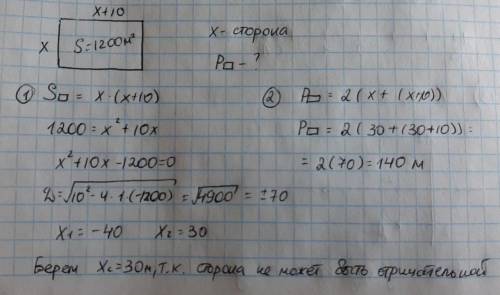 x+10
x S=1200м²
x - сторона
P▭ - ?
① S▭ = x·(x+10)
1200 = x²+10x
x²+10x-1200=0
D=√10²-4·1·(-1200) = √4900 = ±70
x₁ = -40 x₂ = 30
② P▭ = 2(x + (x+10))
P▭ = 2(30+(30+10)) =
= 2(70) = 140 м
Берем x₂=30м, т.к. сторона не может быть отричательной